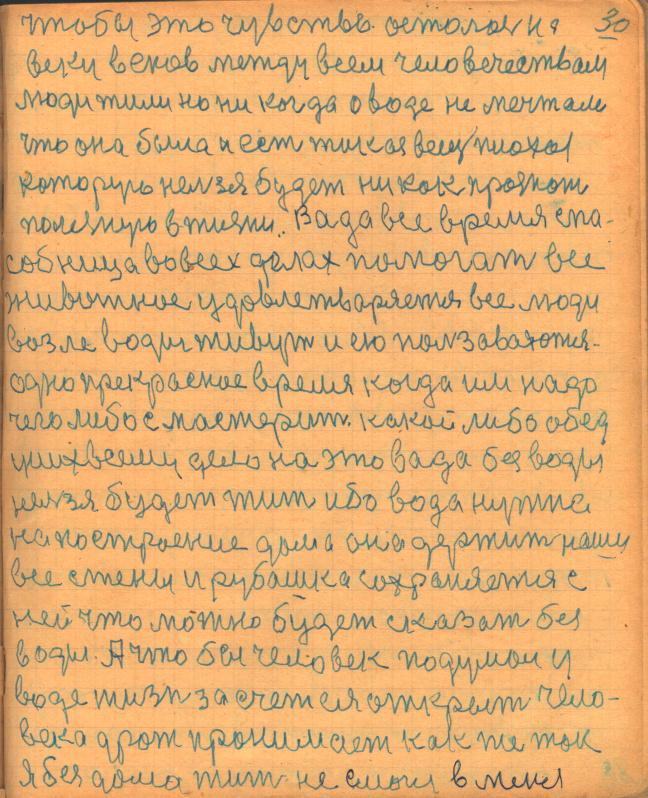 чтобы это чувства осталось на 30
веки веков между всем человечествам
люди жили но ни когда о воде не мечтали
что она была и ест такая вещ плохая
которую нелзя будет ни как
полезную в жизни.. Вада все время спа-
собница вовсех делах помогат все
животное удовлетваряется все люди
возле воды живут и ею ползаваются-
одно прекрасное время когда им надо
чего либо смастерит. какой либо обед
у них всему дело на это вада без воды
нелзя будет жит ибо вода нужна
на построение дома она держит наши
все стены и рубашка сохраняется с
ней что можно будет сказат без
воды. А что бы человек подумал и
воде жизн за счет ея открыт чело-
века дрож пронимает как же так
я без дома жит не смогу в меня